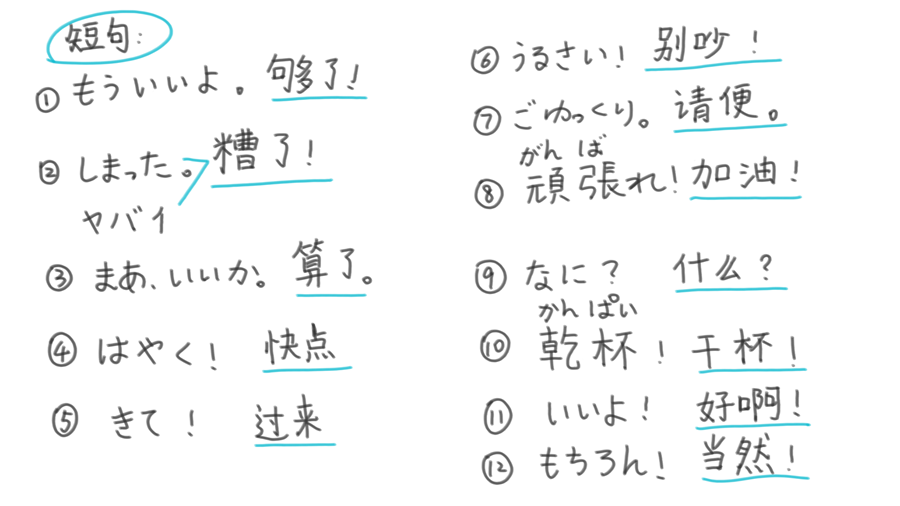 短句:
① もういいよ。 句多了!
② しまった。 糟了!
ヤバイ
③ まあ、いいか。 算了。
④ はやく! 快点
⑤ きて! 过来
⑥ うるさい! 别吵!
⑦ ごゆっくり。 请便。
がん ば
⑧ 頑張れ! 加油!
⑨ なに? 什么?
かん ぱい
⑩ 乾杯! 干杯!
⑪ いいよ! 好啊!
⑫ もちろん! 当然!